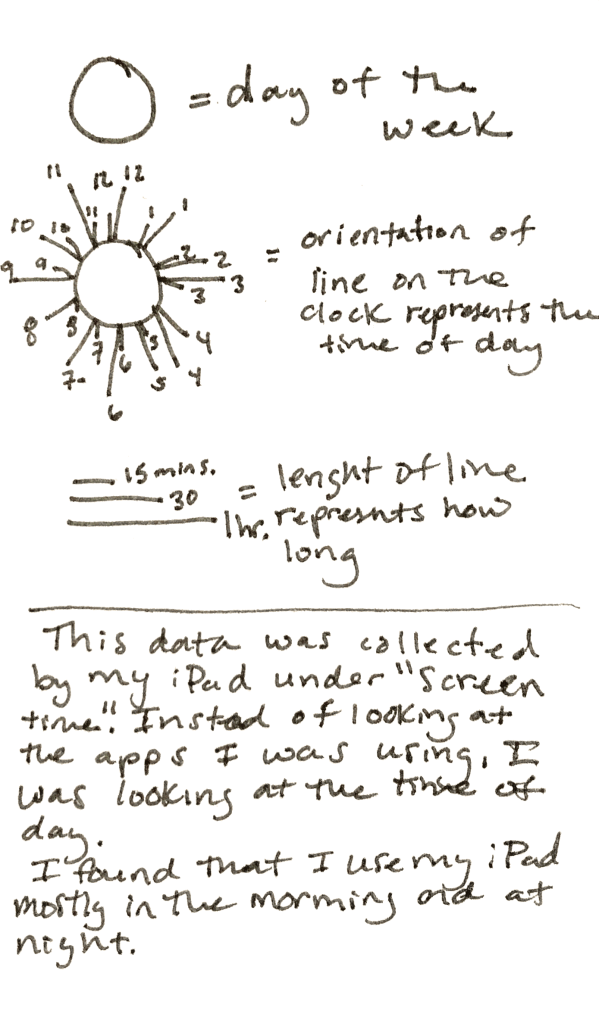 = day of the
week
11 12 12
10 10 11 1 1
9 9 2 2
3 3
8 8 7 6 5 4
7. 5 4
6
= orientation of
line on the
clock represents the
time of day
15 mins.
30
1hr.
= lenght of line
represnts how
long
This data was collected
by my iPad under "Screen
time". Instad of looking at
the apps I was using, I
was looking at the time of
day.
I found that I use my iPad
mostly in the morming and at
night.